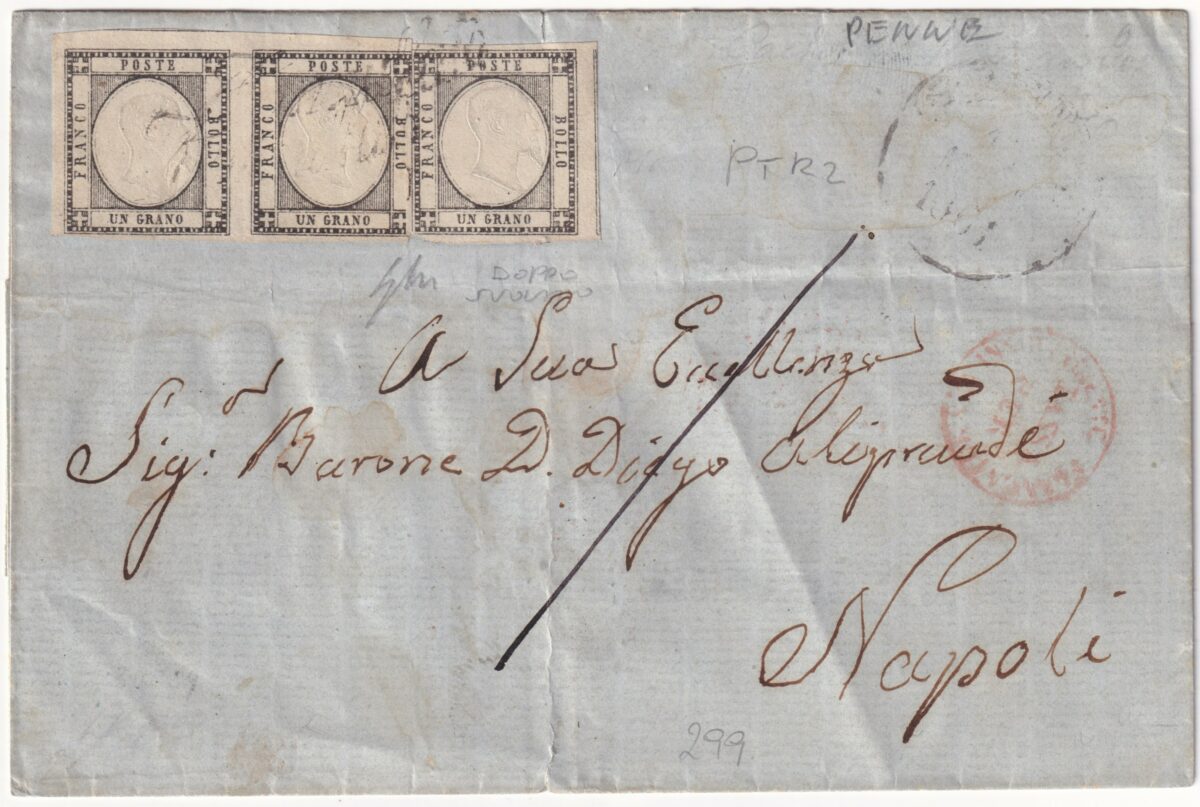 PENNE
POSTE POSTE POSTE
FRANCO BOLLO FRANCO BOLLO FRANCO BOLLO
UN GRANO UN GRANO UN GRANO
PTR2
1861
DOPPO
A Sua Eccellenza
Sig.r Barone D. Diego Aliprandi
Napoli
299